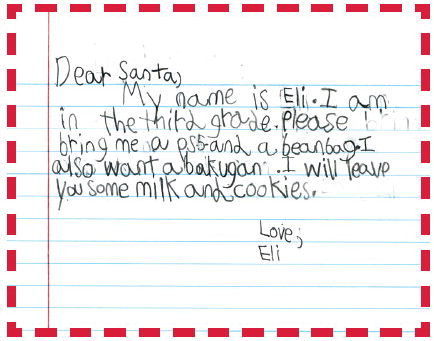 Dear Santa,
My name is Eli. I am
in the third grade. Please
bring me a ps5 and a beanbag. I
also want a bakugan. I will leave
you some milk and cookies.
Love,
Eli